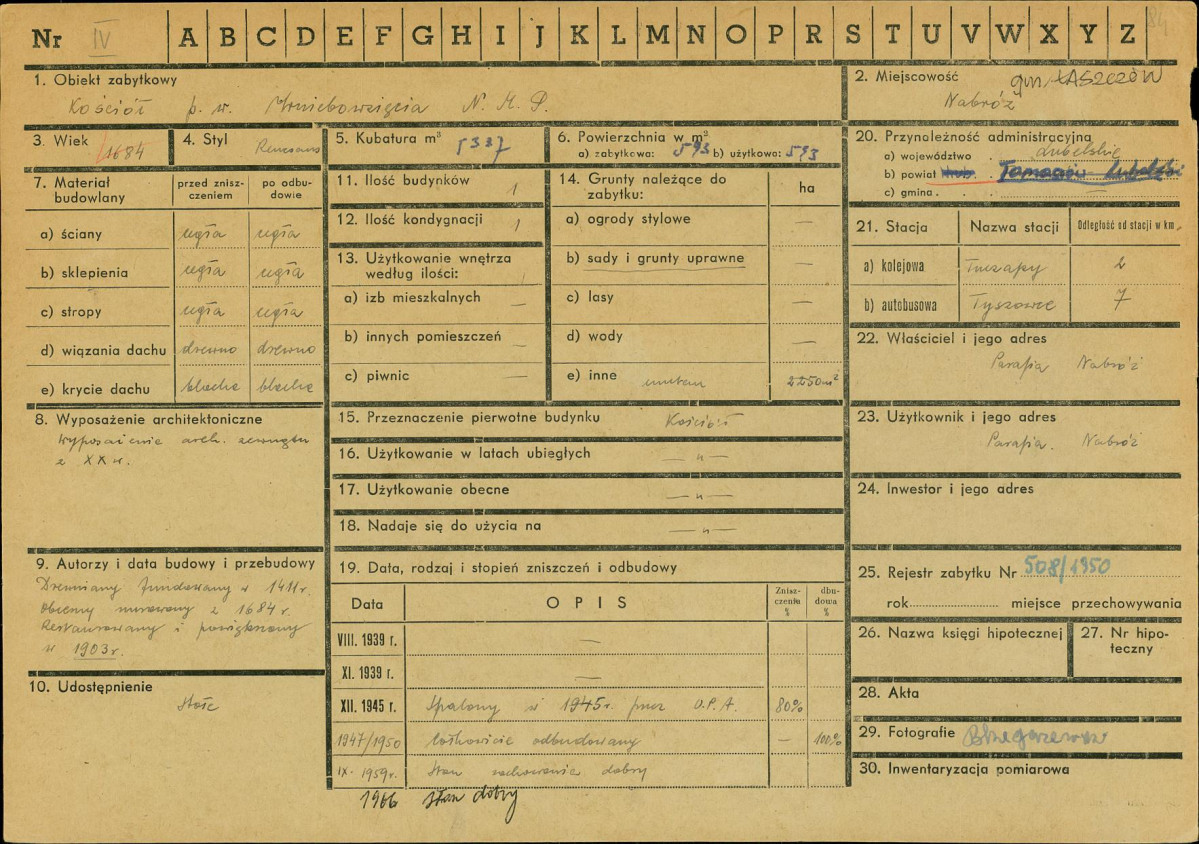 Nr IV A B C D E F G H I J K L M N O P R S T U V W X Y Z 84
1. Obiekt zabytkowy
Kościół p. w. Wniebowzięcia N. M. P.
2. Miejscowość gm. ŁASZCZÓW
Nabróż
3. Wiek
1684
4. Styl
Renesans
5. Kubatura m³ 5337
6. Powierzchnia w m²
a) zabytkowa: 593 b) użytkowa: 593
20. Przynależność administracyjna
a) województwo . lubelskie
b) powiat Tomaszów Lubelski
c) gmina . . —
7. Materiał budowlany
przed znisz-
czeniem
po odbu-
dowie
a) ściany cegła cegła
b) sklepienia cegła cegła
c) stropy cegła cegła
d) wiązania dachu drewno drewno
e) krycie dachu blacha blacha
11. Ilość budynków 1
12. Ilość kondygnacji 1
13. Użytkowanie wnętrza
według ilości: 1
a) izb mieszkalnych —
b) innych pomieszczeń —
c) piwnic —
14. Grunty należące do
zabytku:
ha
a) ogrody stylowe —
b) sady i grunty uprawne —
c) lasy —
d) wody —
e) inne cmentarz 2250 m²
21. Stacja Nazwa stacji Odległość od stacji w km
a) kolejowa Tuczapy 2
b) autobusowa Tyszowce 7
22. Właściciel i jego adres
Parafia Nabróż
8. Wyposażenie architektoniczne
Wyposażenie arch. zewnątrz
z XX w.
15. Przeznaczenie pierwotne budynku Kościół
16. Użytkowanie w latach ubiegłych — „ —
17. Użytkowanie obecne — „ —
18. Nadaje się do użycia na — „ —
23. Użytkownik i jego adres
Parafia. Nabróż
24. Inwestor i jego adres
9. Autorzy i data budowy i przebudowy
Drewniany fundowany w 1411 r.
Obecny murowany z 1684 r.
Restaurowany i powiększony
w 1903 r.
10. Udostępnienie
19. Data, rodzaj i stopień zniszczeń i odbudowy
Data OPIS
Znisz-
czeniu
%
dbu-
dowa
%
VIII. 1939 r. —
XI. 1939 r. —
XII. 1945 r. Spalony w 1945 r. przez U.P.A. 80%
1947/1950 Całkowicie odbudowany — 100%
IX. 1959 r. Stan zachowania dobry
1966 stan dobry
25. Rejestr zabytku Nr 508/1950
rok miejsce przechowywania
26. Nazwa księgi hipotecznej
27. Nr hipo-
teczny
28. Akta
29. Fotografie
30. Inwentaryzacja pomiarowa